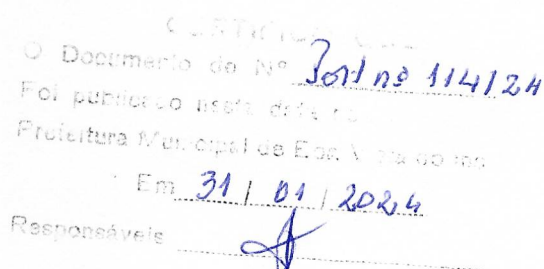 O Documento de Nº Port nº 114/24
Foi publicado nesta data
Prefeitura Municipal de
Em 31 / 01 / 2024
Responsáveis